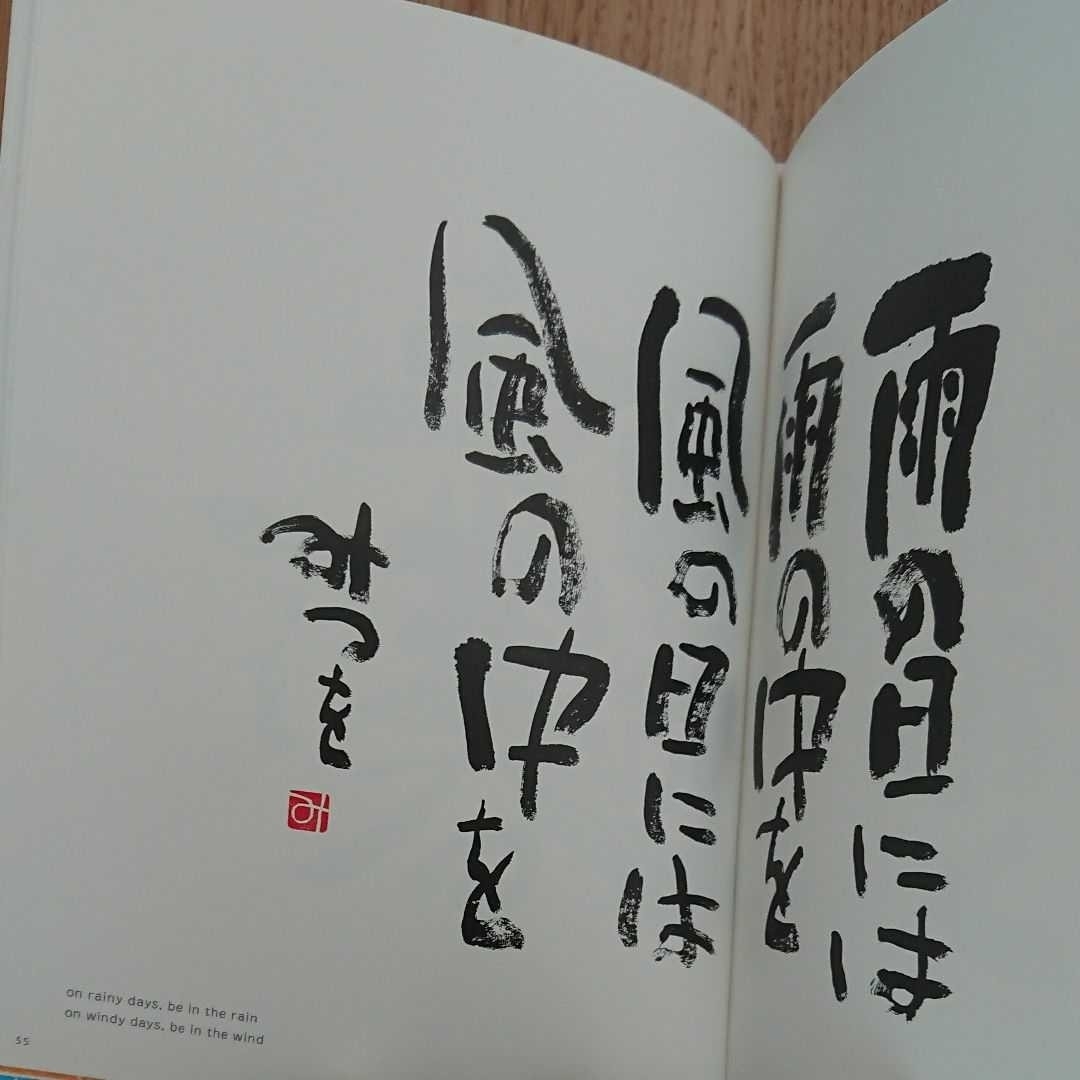 雨の日には
雨の中を
風の日には
風の中を
みつを
み
on rainy days, be in the rain
on windy days, be in the wind
55